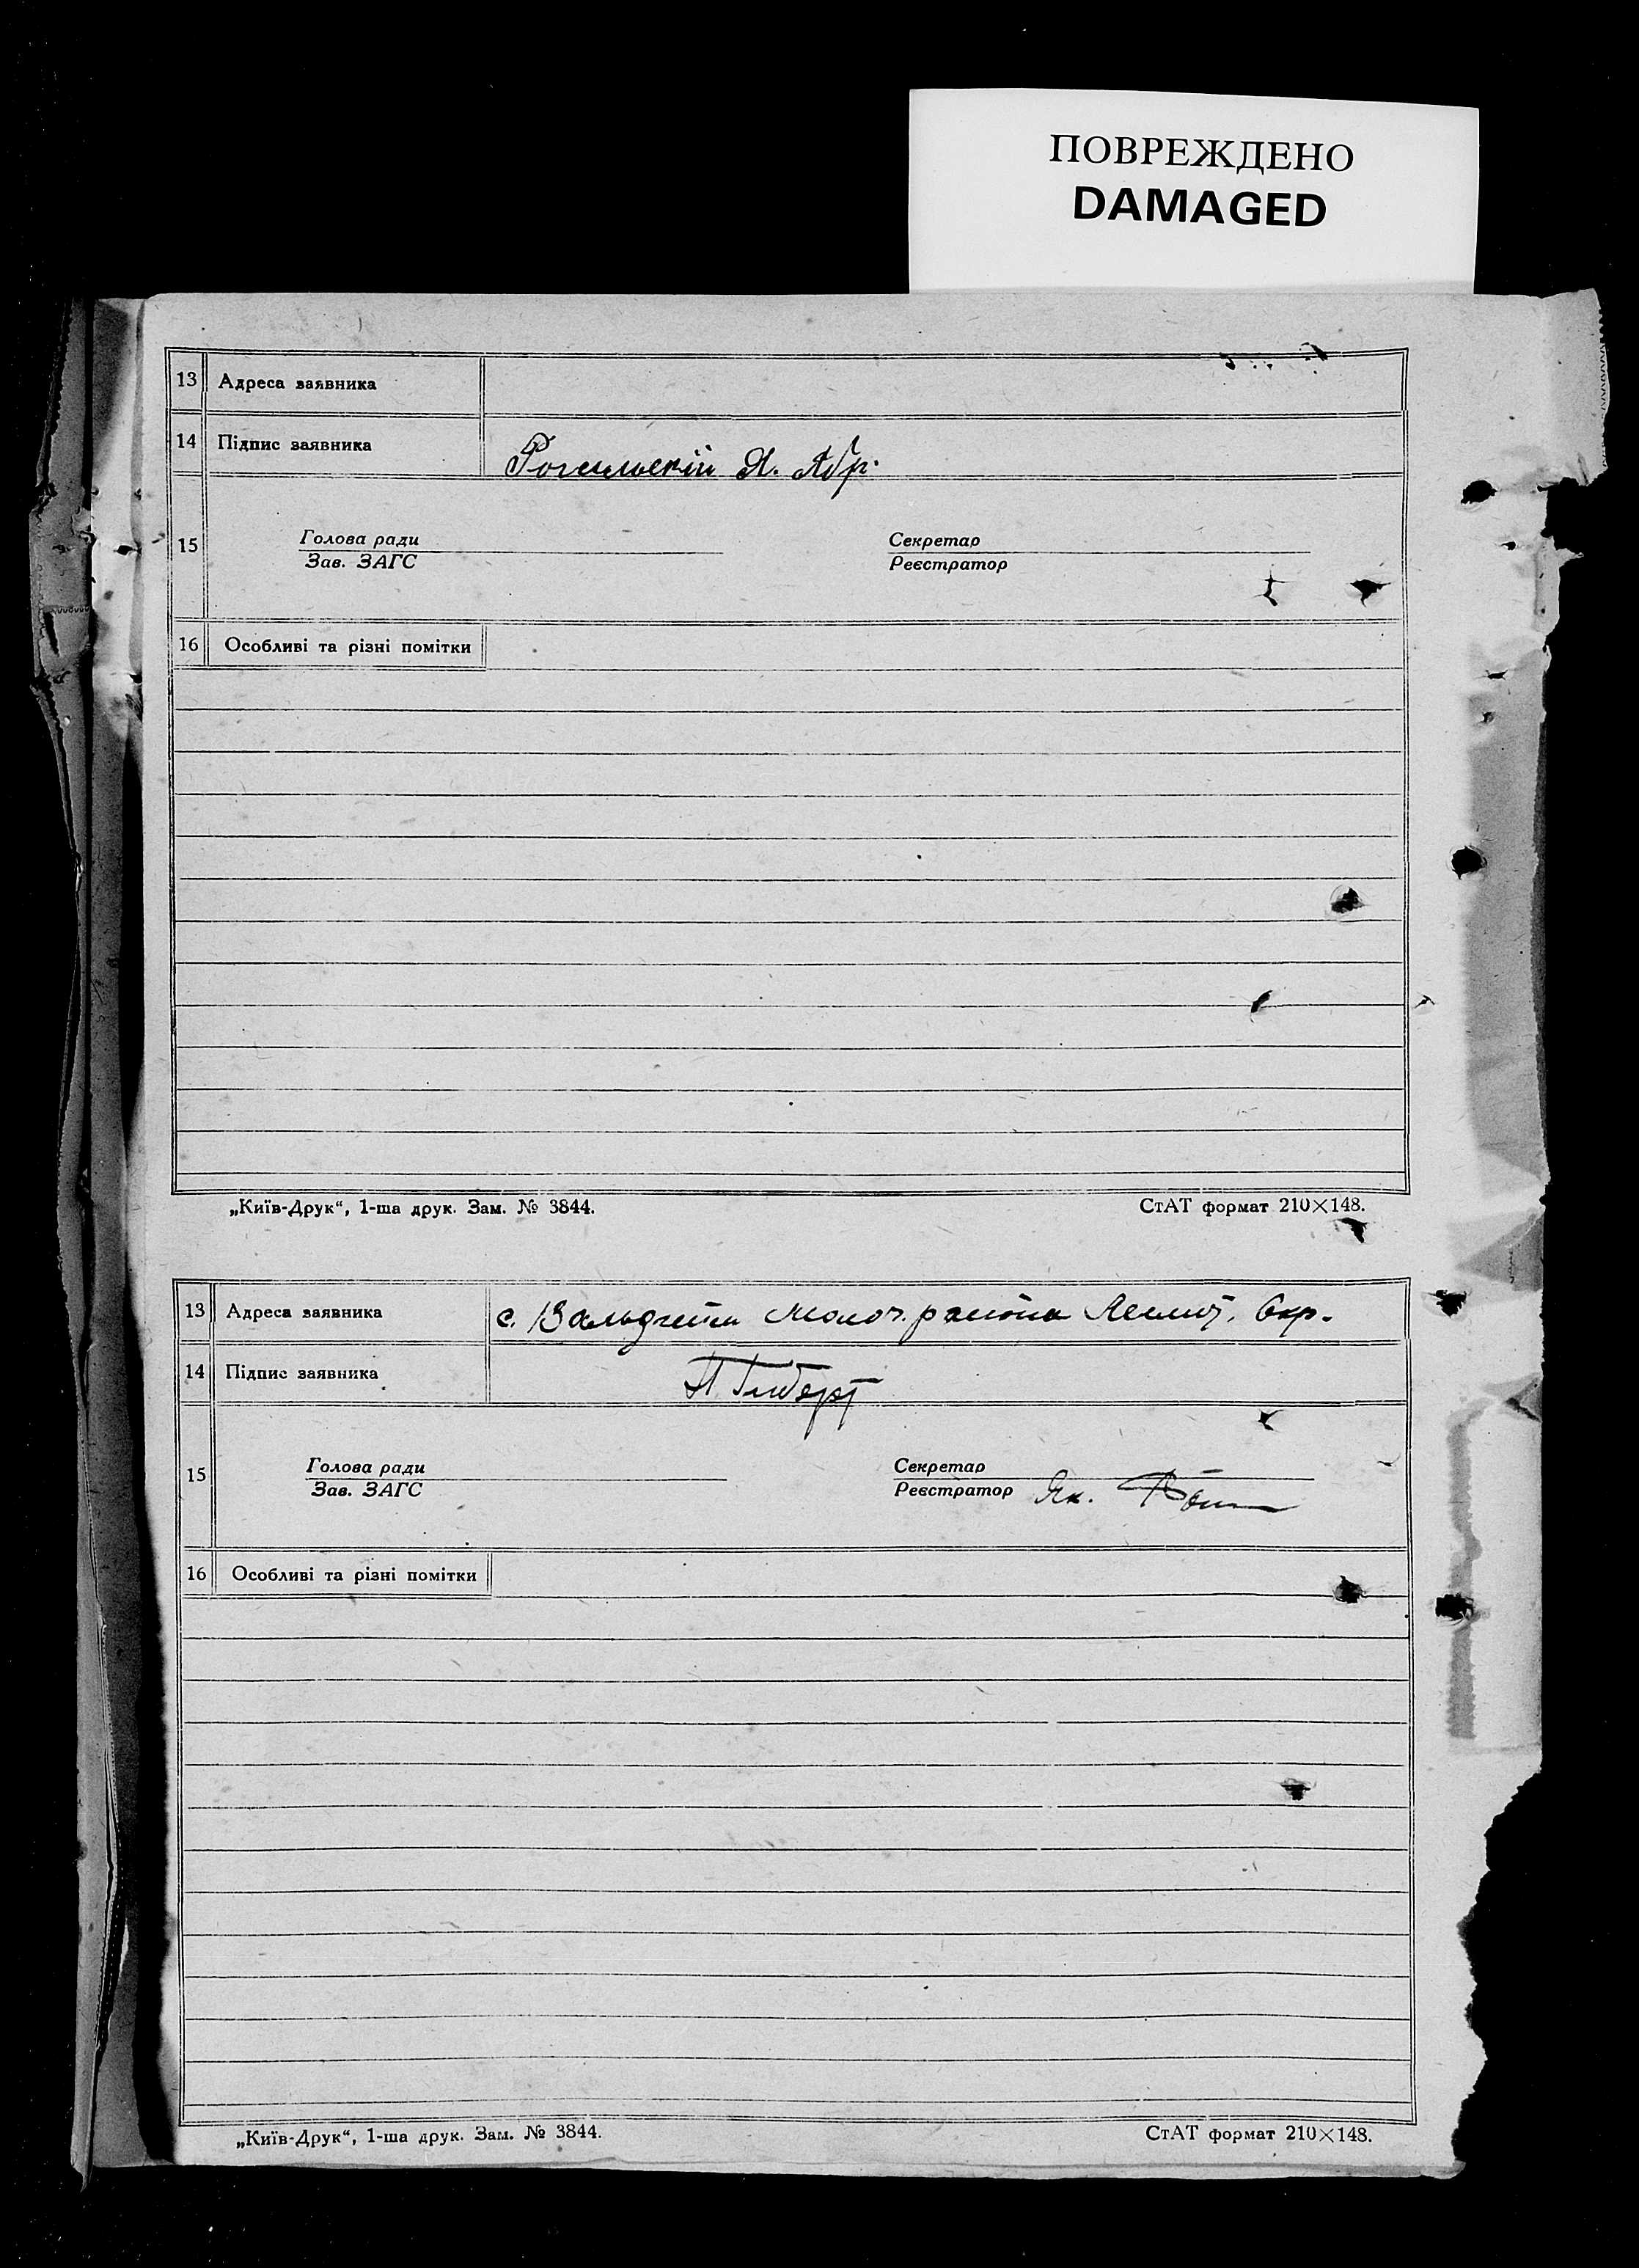 ПОВРЕЖДЕНО
DAMAGED
13 Адреса заявника
14 Підпис заявника Я. Абр.
15 Голова ради Секретар
Зав. ЗАГС Реєстратор
16 Особливі та різні помітки
„Київ-Друк“, 1-ша друк. Зам. № 3844. СтАТ формат 210×148.
13 Адреса заявника с. Молоч. района Окр.
14 Підпис заявника
15 Голова ради Секретар
Зав. ЗАГС Реєстратор Як.
16 Особливі та різні помітки
„Київ-Друк“, 1-ша друк. Зам. № 3844. СтАТ формат 210×148.